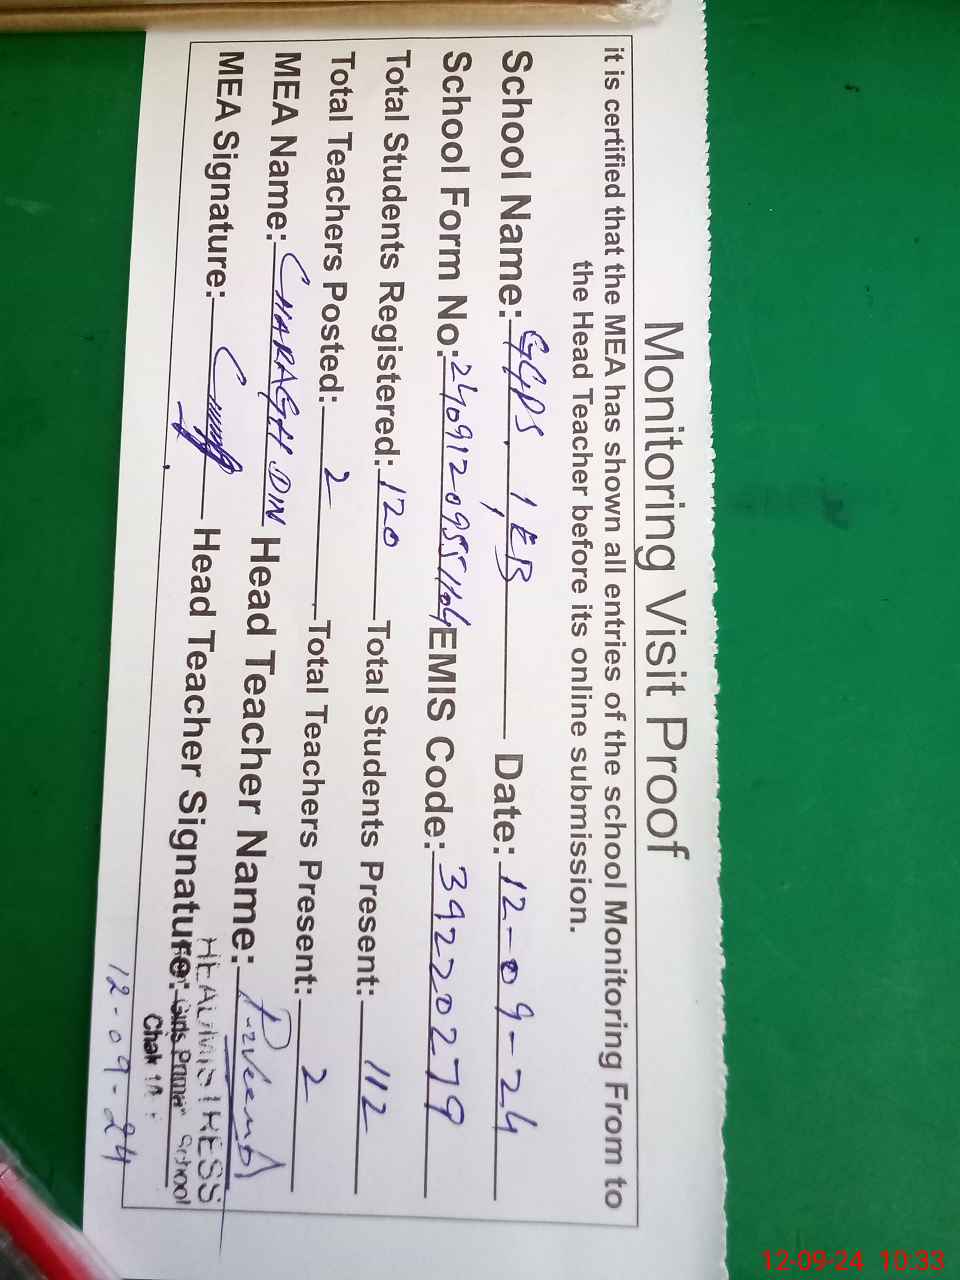 Monitoring Visit Proof
it is certified that the MEA has shown all entries of the school Monitoring From to
the Head Teacher before its online submission.
School Name: GGPS 1, EB Date: 12-09-24
School Form No: EMIS Code: 39220279
Total Students Registered: 120 Total Students Present: 112
Total Teachers Posted: 2 Total Teachers Present: 2
MEA Name: CHARAGH DIN Head Teacher Name: Parveen
MEA Signature: Head Teacher Signature:
HEADMISTRESS
Girls Primary School
Chak
12-09-24
12-09-24 10:33